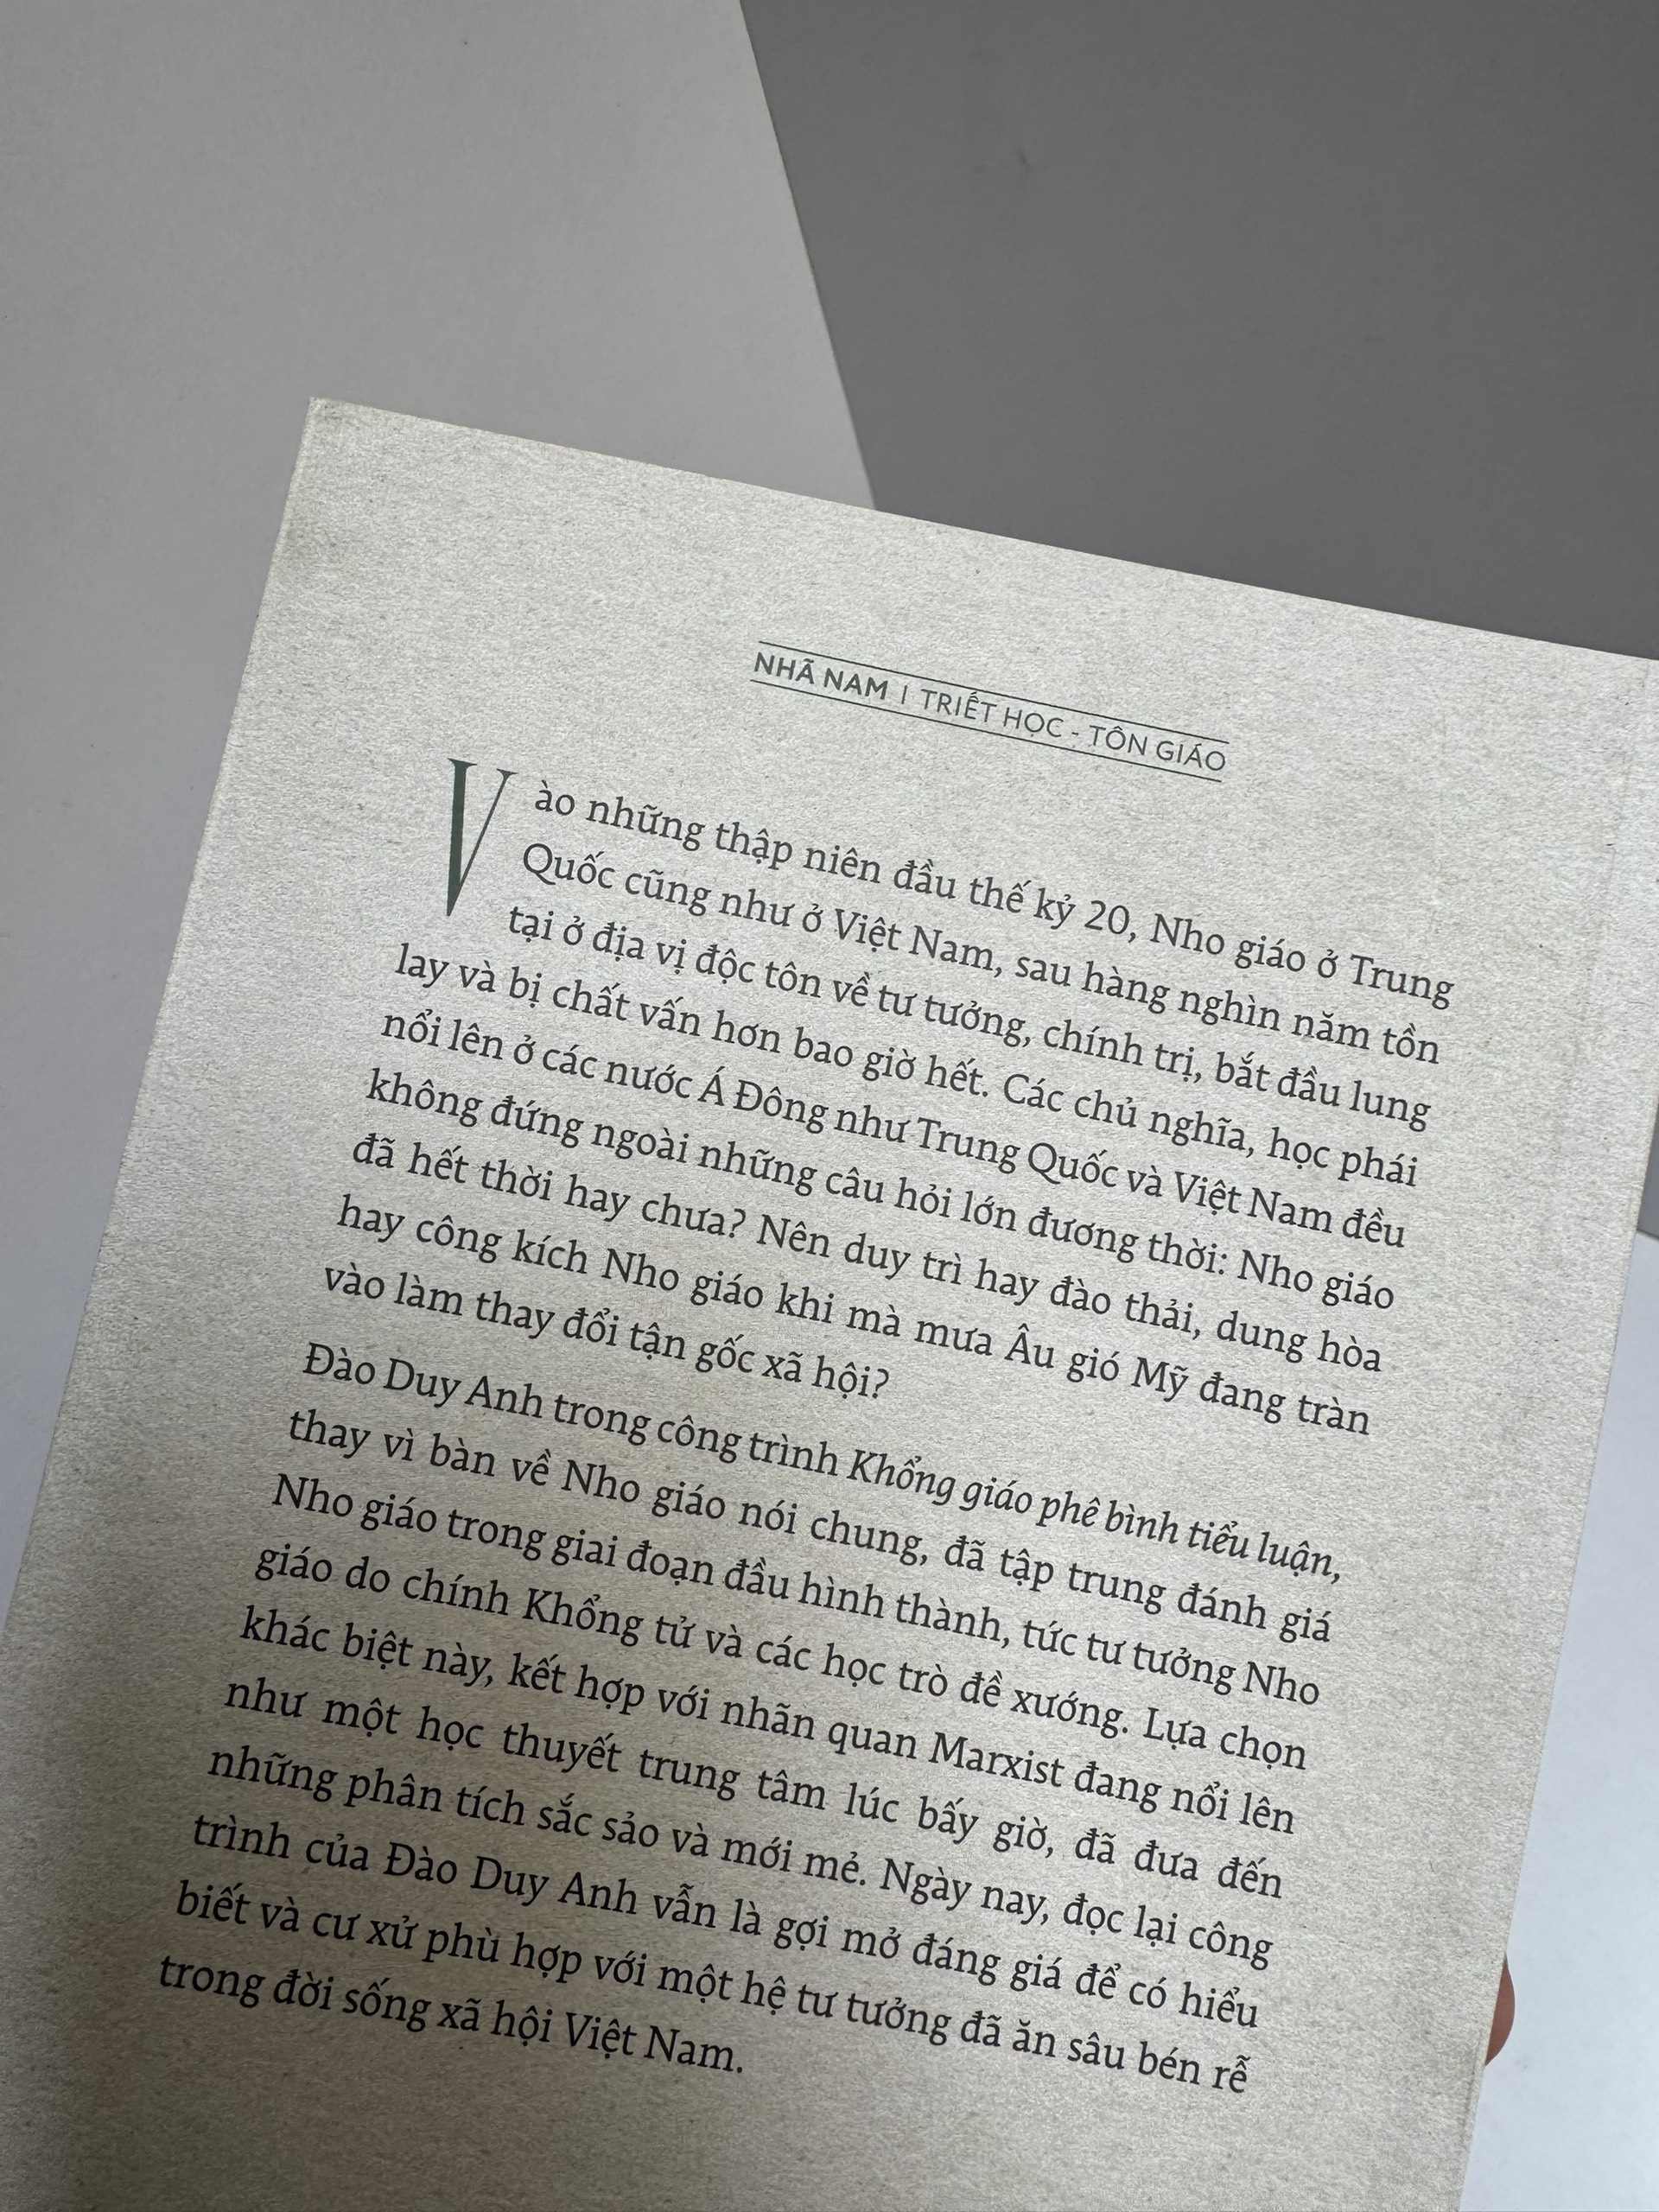 NHÃ NAM | TRIẾT HỌC - TÔN GIÁO
Vào những thập niên đầu thế kỷ 20, Nho giáo ở Trung
Quốc cũng như ở Việt Nam, sau hàng nghìn năm tồn
tại ở địa vị độc tôn về tư tưởng, chính trị, bắt đầu lung
lay và bị chất vấn hơn bao giờ hết. Các chủ nghĩa, học phái
nổi lên ở các nước Á Đông như Trung Quốc và Việt Nam đều
không đứng ngoài những câu hỏi lớn đương thời: Nho giáo
đã hết thời hay chưa? Nên duy trì hay đào thải, dung hòa
hay công kích Nho giáo khi mà mưa Âu gió Mỹ đang tràn
vào làm thay đổi tận gốc xã hội?
Đào Duy Anh trong công trình Khổng giáo phê bình tiểu luận,
thay vì bàn về Nho giáo nói chung, đã tập trung đánh giá
Nho giáo trong giai đoạn đầu hình thành, tức tư tưởng Nho
giáo do chính Khổng tử và các học trò đề xướng. Lựa chọn
khác biệt này, kết hợp với nhãn quan Marxist đang nổi lên
như một học thuyết trung tâm lúc bấy giờ, đã đưa đến
những phân tích sắc sảo và mới mẻ. Ngày nay, đọc lại công
trình của Đào Duy Anh vẫn là gợi mở đáng giá để có hiểu
biết và cư xử phù hợp với một hệ tư tưởng đã ăn sâu bén rễ
trong đời sống xã hội Việt Nam.